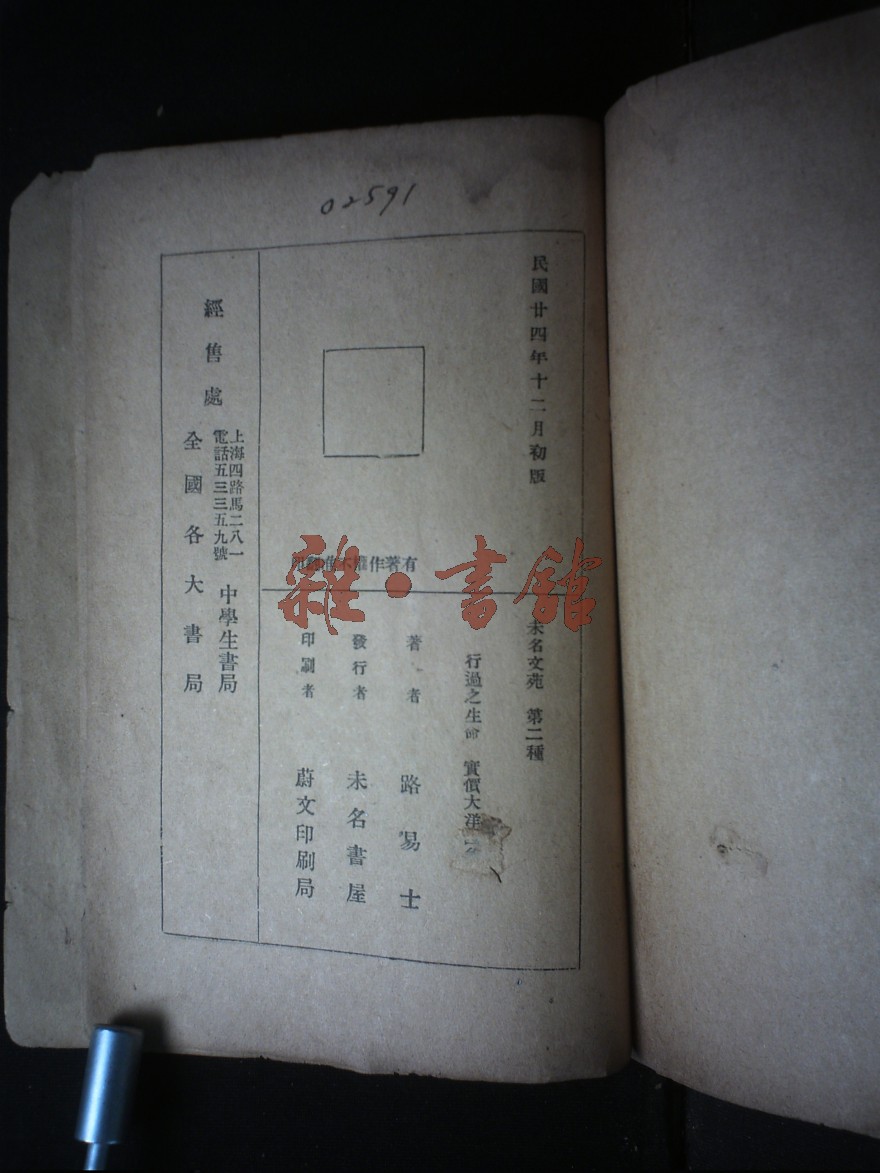 02591
民國廿四年十二月初版
有著作權不准翻印
未名文苑 第二種
行過之生命 實價大洋
著者 路易士
發行者 未名書屋
印刷者 蔚文印刷局
經售處
上海四路馬二八一
電話五三三五九號
中學生書局
全國各大書局
雜·書館